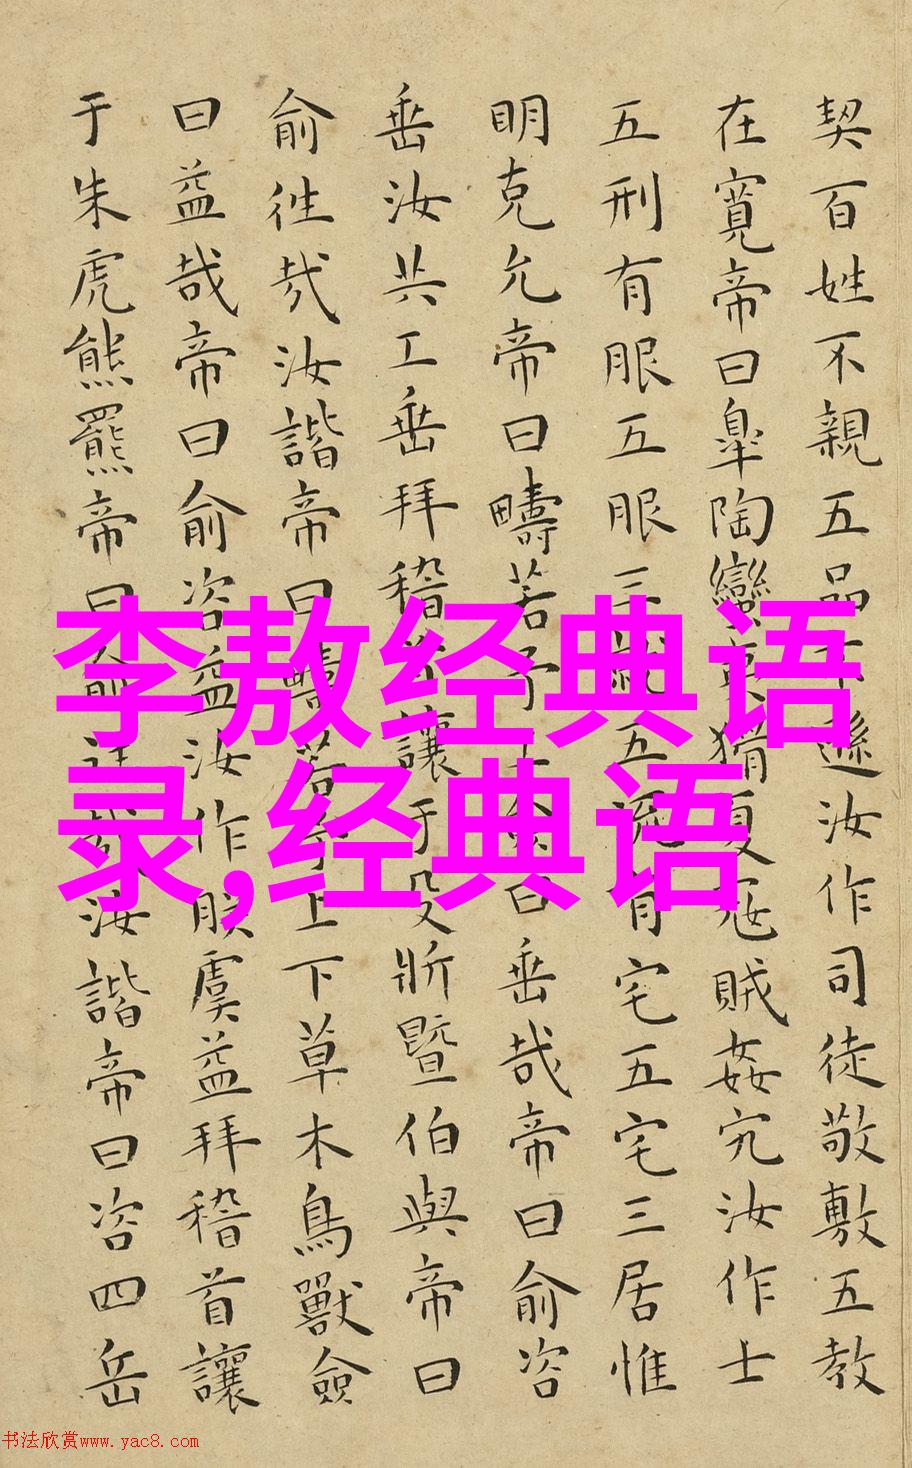 契百姓不親五品不遜汝作司徒敬敷五教
在寬帝曰皐陶蠻夷猾夏寇賊姦宄汝作士
五刑有服五服三就五流有宅五宅三居惟
明克允帝曰疇若予工僉曰垂哉帝曰俞咨
垂汝共工垂拜稽首讓于殳斨暨伯與帝曰
俞往哉汝諧帝曰疇若予上下草木鳥獸僉
曰益哉帝曰俞咨益汝作朕虞益拜稽首讓
于朱虎熊羆帝曰俞往哉汝諧帝曰咨四岳
李敖经典语
录,经典语
书法欣赏www.yac8.com